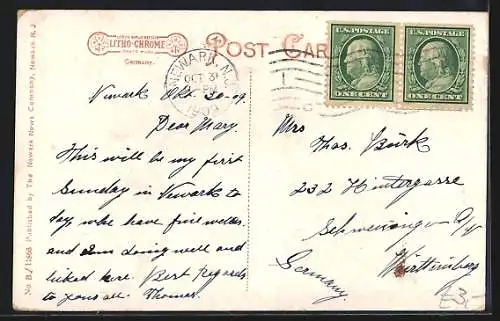 LITHO-CHROME
TRADE MARK
Germany.
POST CARD
NEWARK, N.J.
OCT 31
1909
U.S. POSTAGE
ONE CENT
U.S. POSTAGE
ONE CENT
No. B/11868 Published by The Newark News Company, Newark, N. J.
Newark Okt 30-09.
Dear Mary.
This will be my first
Sunday in Newark to
day, we have fine
and am doing well and
liked here. Best Regards
to yous all. Thomas.
Mrs
Thos. Bürk
232 Hintergasse
Schwenningen a/N
Württemberg
Germany.